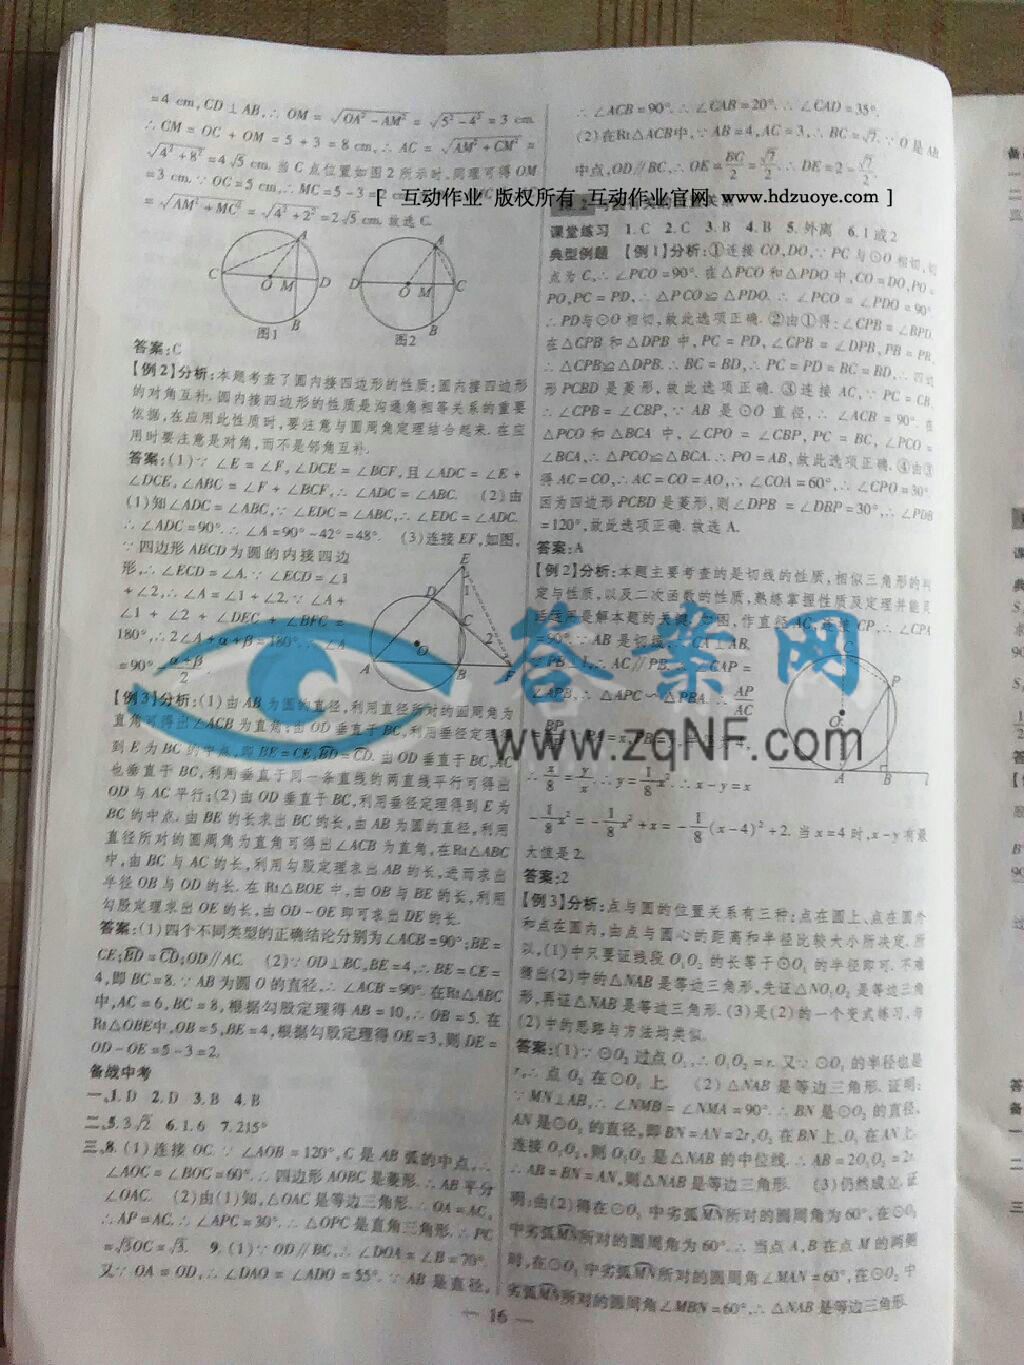 =4 cm,CD⊥AB,∴OM=√(OA²-AM²)=√(5²-4²)=3 cm.
∴CM=OC+OM=5+3=8 cm,∴AC=√(AM²+CM²)=
√(4²+8²)=4√5 cm. 当C点位置如图2所示时,同理可得OM
=3 cm.∵OC=5 cm,∴MC=5-3=2
=√(AM²+MC²)=√(4²+2²)=2√5 cm. 故选C.
C O M D A B
图1
D O M C A B
图2
答案:C
【例2】分析:本题考查了圆内接四边形的性质:圆内接四边形
的对角互补. 圆内接四边形的性质是沟通角相等关系的重要
依据,在应用此性质时,要注意与圆周角定理结合起来. 在应
用时要注意是对角,而不是邻角互补.
答案:(1)∵∠E=∠F,∠DCE=∠BCF,且∠ADC=∠E+
∠DCE,∠ABC=∠F+∠BCF,∴∠ADC=∠ABC. (2)由
(1)知∠ADC=∠ABC,∵∠EDC=∠ABC,∴∠EDC=∠ADC.
∴∠ADC=90°.∴∠A=90°-42°=48°. (3)连接EF,如图,
∵四边形ABCD为圆的内接四边
形,∴∠ECD=∠A.∵∠ECD=∠1
+∠2,∴∠A=∠1+∠2.∵∠A+
∠1+∠2+∠DEC+∠BFC=
180°,∴2∠A+α+β=180°.∴∠A
=90°-(α+β)/2.
E D 1 C 2 O A B F
【例3】分析:(1)由AB为圆的直径,利用直径所对的圆周角为
直角可得出∠ACB为直角;由OD垂直于BC,利用垂径定理得
到E为BC的中点,即BE=CE,BD=CD. 由OD垂直于BC,AC
也垂直于BC,利用垂直于同一条直线的两直线平行可得出
OD与AC平行;(2)由OD垂直于BC,利用垂径定理得到E为
BC的中点,由BE的长求出BC的长,由AB为圆的直径,利用
直径所对的圆周角为直角可得出∠ACB为直角,在Rt△ABC
中,由BC与AC的长,利用勾股定理求出AB的长,进而求出
半径OB与OD的长. 在Rt△BOE中,由OB与BE的长,利用
勾股定理求出OE的长,由OD-OE即可求出DE的长.
答案:(1)四个不同类型的正确结论分别为∠ACB=90°;BE=
CE;BD=CD;OD∥AC. (2)∵OD⊥BC,BE=4,∴BE=CE=
4,即BC=8.∵AB为圆O的直径,∴∠ACB=90°.在Rt△ABC
中,AC=6,BC=8,根据勾股定理得AB=10,∴OB=5. 在
Rt△OBE中,OB=5,BE=4,根据勾股定理得OE=3,则DE=
OD-OE=5-3=2.
备战中考
一、1. D 2. D 3. B 4. B
二、5. 3√2 6. 1.6 7. 215°
三、8. (1)连接OC.∵∠AOB=120°,C是AB弧的中点,∴
∠AOC=∠BOC=60°.∴四边形AOBC是菱形.∴AB平分
∠OAC. (2)由(1)知,△OAC是等边三角形.∴OA=AC.
∴AP=AC.∴∠APC=30°.∴△OPC是直角三角形.∴PC
=√3OC=√3. 9. (1)∵OD∥BC,∴∠DOA=∠B=70°.
又∵OA=OD,∴∠DAO=∠ADO=55°.∵AB是直径,
∴∠ACB=90°.∴∠CAB=20°.∴∠CAD=35°.
(2)在Rt△ACB中,∵AB=4,AC=3,∴BC=√7.∵O是AB
中点,OD∥BC,∴OE=BC/2=√7/2.∴DE=2-√7/2.
[ 互动作业 版权所有 互动作业官网 www.hdzuoye.com ]
课堂练习 1. C 2. C 3. B 4. B 5. 外离 6. 1或2
典型例题 【例1】分析:①连接CO,DO,∵PC与⊙O相切,切
点为C,∴∠PCO=90°.在△PCO和△PDO中,CO=DO,PO=
PO,PC=PD,∴△PCO≌△PDO.∴∠PCO=∠PDO=90°.
∴PD与⊙O相切,故此选项正确. ②由①得:∠CPB=∠BPD,
在△CPB和△DPB中,PC=PD,∠CPB=∠DPB,PB=PB,
∴△CPB≌△DPB.∴BC=BD,∴PC=PD=BC=BD,∴四边
形PCBD是菱形,故此选项正确. ③连接AC,∵PC=CB,
∴∠CPB=∠CBP,∵AB是⊙O直径,∴∠ACB=90°.在
△PCO和△BCA中,∠CPO=∠CBP,PC=BC,∠PCO=
∠BCA,∴△PCO≌△BCA.∴PO=AB,故此选项正确. ④由③
得AC=CO,∴AC=CO=AO,∴∠COA=60°,∴∠CPO=30°.
因为四边形PCBD是菱形,则∠DPB=∠DBP=30°,∴∠PDB
=120°,故此选项正确. 故选A.
答案:A
【例2】分析:本题主要考查的是切线的性质,相似三角形的判
定与性质,以及二次函数的性质,熟练掌握性质及定理并能灵
活运用是解本题的关键. 如图,作直径AC,连接CP,∴∠CPA
=90°.∵AB是切线,∴CA⊥AB.
∵PB⊥l,∴AC∥PB.∴∠CAP=
∠APB.∴△APC∽△PBA.∴AP/AC
C P O A B l
答案网
www.zqNF.com
∴x/8=y/x.∴y=1/8x².∴x-y=x
-1/8x²=-1/8x²+x=-1/8(x-4)²+2. 当x=4时,x-y有最
大值是2.
答案:2
【例3】分析:点与圆的位置关系有三种:点在圆上、点在圆外
和点在圆内,由点与圆心的距离和半径比较大小所决定. 所
以,(1)中只要证线段O₁O₂的长等于⊙O₁的半径即可. 不难
猜出(2)中的△NAB是等边三角形,先证△NO₁O₂是等边三角
形,再证△NAB是等边三角形. (3)是(2)的一个变式练习,与
(2)中的思路与方法均类似.
答案:(1)∵⊙O₂过点O₁,∴O₁O₂=r. 又∵⊙O₁的半径也是
r,∴点O₂在⊙O₁上. (2)△NAB是等边三角形. 证明:
∵MN⊥AB,∴∠NMB=∠NMA=90°.∴BN是⊙O₂的直径,
AN是⊙O₁的直径,即BN=AN=2r,O₂在BN上,O₁在AN上.
连接O₁O₂,则O₁O₂是△NAB的中位线.∴AB=2O₁O₂=2r.
∴AB=BN=AN,则△NAB是等边三角形. (3)仍然成立. 证
明:由(2)得在⊙O₁中劣弧MN所对的圆周角为60°,在⊙O₂
中劣弧MN所对的圆周角为60°.∴当点A,B在点M的两侧
时,在⊙O₁中劣弧MN所对的圆周角∠MAN=60°,在⊙O₂中
劣弧MN所对的圆周角∠MBN=60°,∴△NAB是等边三角形.
— 16 —